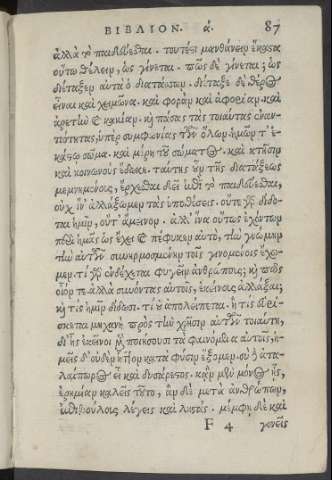 ΒΙΒΛΙΟΝ. ά. 87
ἀλλὰ τὸ παιδεύεσθαι. τουτέςι μανθάνειν ἕκαςα
οὕτω θέλειν, ὡς γίνεται. πῶς δὲ γίνεται; ὡς
διέταξεν αὐτὰ ὁ διατάσσων. διέταξε δὲ θέρος
εἶναι καὶ χειμῶνα. καὶ φορὰν καὶ ἀφορίαν καὶ
ἀρετὴν καὶ κακίαν. καὶ πάσας τὰς τοιαύτας ἐναν-
τιότητας, ὑπὲρ συμφωνίας τῶν ὅλων ἡμῶν τ' ἑ-
κάςῳ σῶμα. καὶ μέρη τοῦ σώματος. καὶ κτῆσιν
καὶ κοινωνοὺς ἔδωκε. ταύτης οὖν τῆς διατάξεως
μεμνημένοις, ἔρχεσθαι δεῖ ἐπὶ τὸ παιδεύεσθαι,
οὐχ ἵν' ἀλλάξωμεν τὰς ὑποθέσεις. οὔτε γὰρ δίδο-
ται ἡμῖν, οὔτ' ἄμεινον. ἀλλ' ἵνα οὕτως ἐχόντων
περὶ ἡμᾶς ὡς ἔχει καὶ πέφυκεν αὐτὸ, τὴν γνώμην
τὴν αὐτῶν συνηρμοσμένην τοῖς γινομένοις ἔχω-
μεν. τί γὰρ ἐνδέχεται φυγεῖν ἀνθρώπους; καὶ πῶς
οἷόν τε ἀλλὰ συνόντας αὐτοῖς, ἐκείνοις ἀλλάξαι;
καὶ τίς ἡμῖν δίδωσι. τί οὖν ἀπολείπεται. ἢ τίς εὑρί-
σκεται μηχανὴ πρὸς τὴν χρῆσιν αὐτῶν τοιαύτη,
δι' ἧς ἐκεῖνοι μὲν ποιήσουσι τὰ φαινόμενα αὐτοῖς, ἡ-
μεῖς δ' οὐδὲν ἧττον κατὰ φύσιν ἕξομεν. σὺ δ' ἀτα-
λαίπωρος εἶ καὶ δυσάρεςος. κἂν μὲν μόνος ᾖς,
ἐρημίαν καλεῖς τοῦτο, ἂν δὲ μετὰ ἀνθρώπων,
ἐπιβούλους λέγεις καὶ λῃςάς. μέμφῃ δὲ καὶ
F 4 γονεῖς